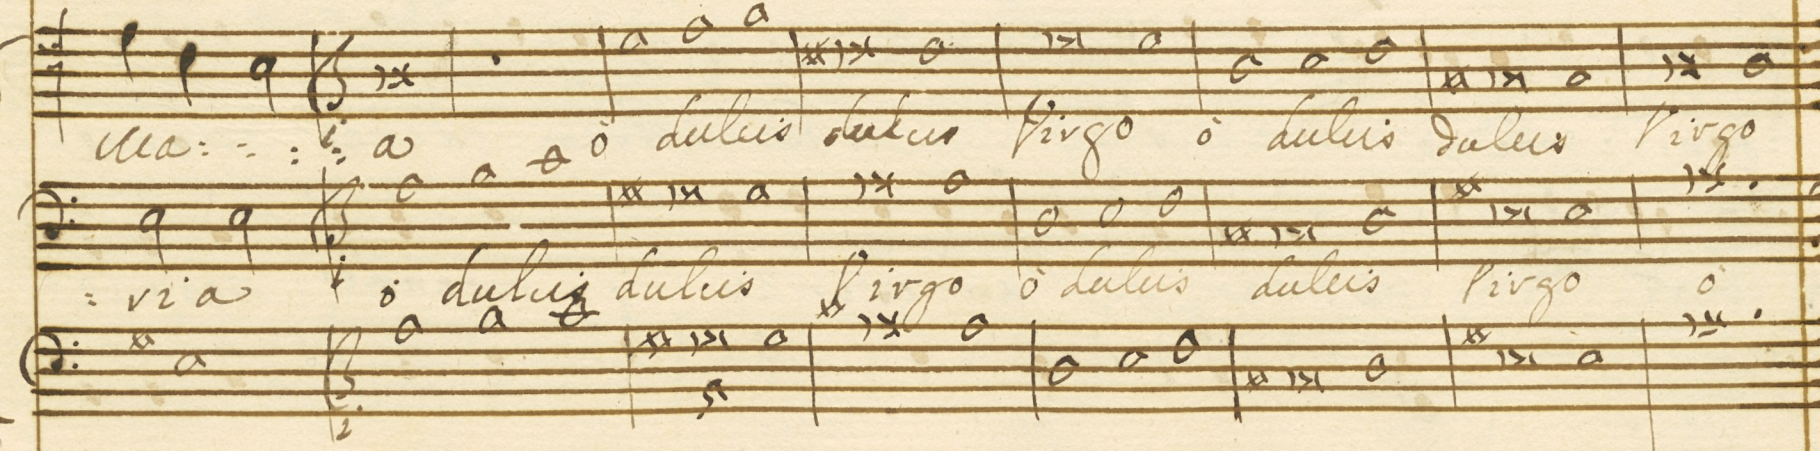 Ma: - - : i= a ò dulcis dulcis Virgo ò dulcis dulcis Virgo
= ria ò dulcis dulcis Virgo ò dulcis dulcis Virgo ò